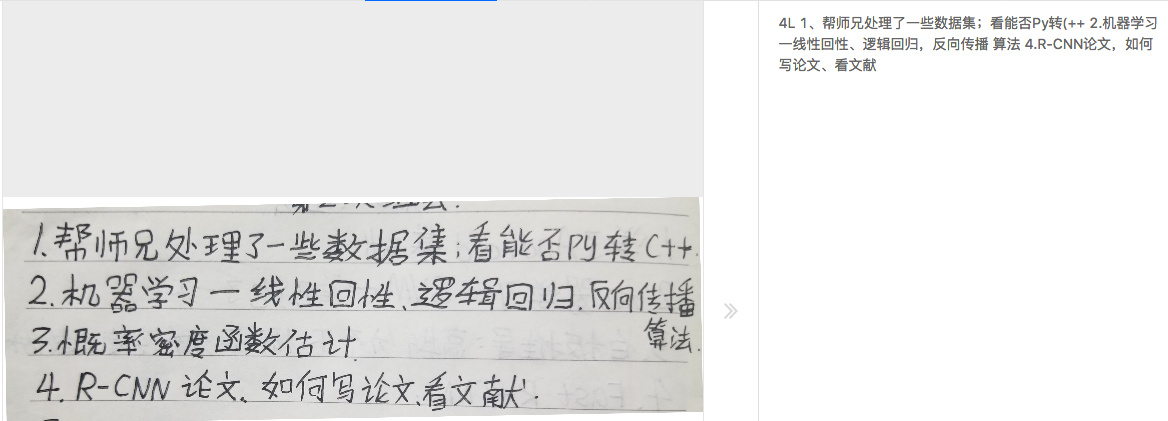 1.帮师兄处理了一些数据集;看能否Py转C++.
2.机器学习一线性回性、逻辑回归.反向传播
算法.
3.概率密度函数估计
4.R-CNN论文、如何写论文、看文献.
4L 1、帮师兄处理了一些数据集;看能否Py转(++ 2.机器学习
一线性回性、逻辑回归，反向传播 算法 4.R-CNN论文，如何
写论文、看文献